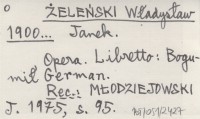 o ŻELEŃSKI Władysław
1900... Janek.
Opera. Libretto: Bogu-
mił German.
Rec.: MŁODZIEJOWSKI
J. 1975, s. 95.